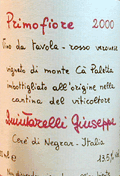 Primofiore 2000
Vino da Tavola - rosso veronese
vigneto di monte Cà Paletta
imbottigliato all'origine nella
cantina del viticoltore
Quintarelli Giuseppe
Cerè di Negrar - Italia
13.5%